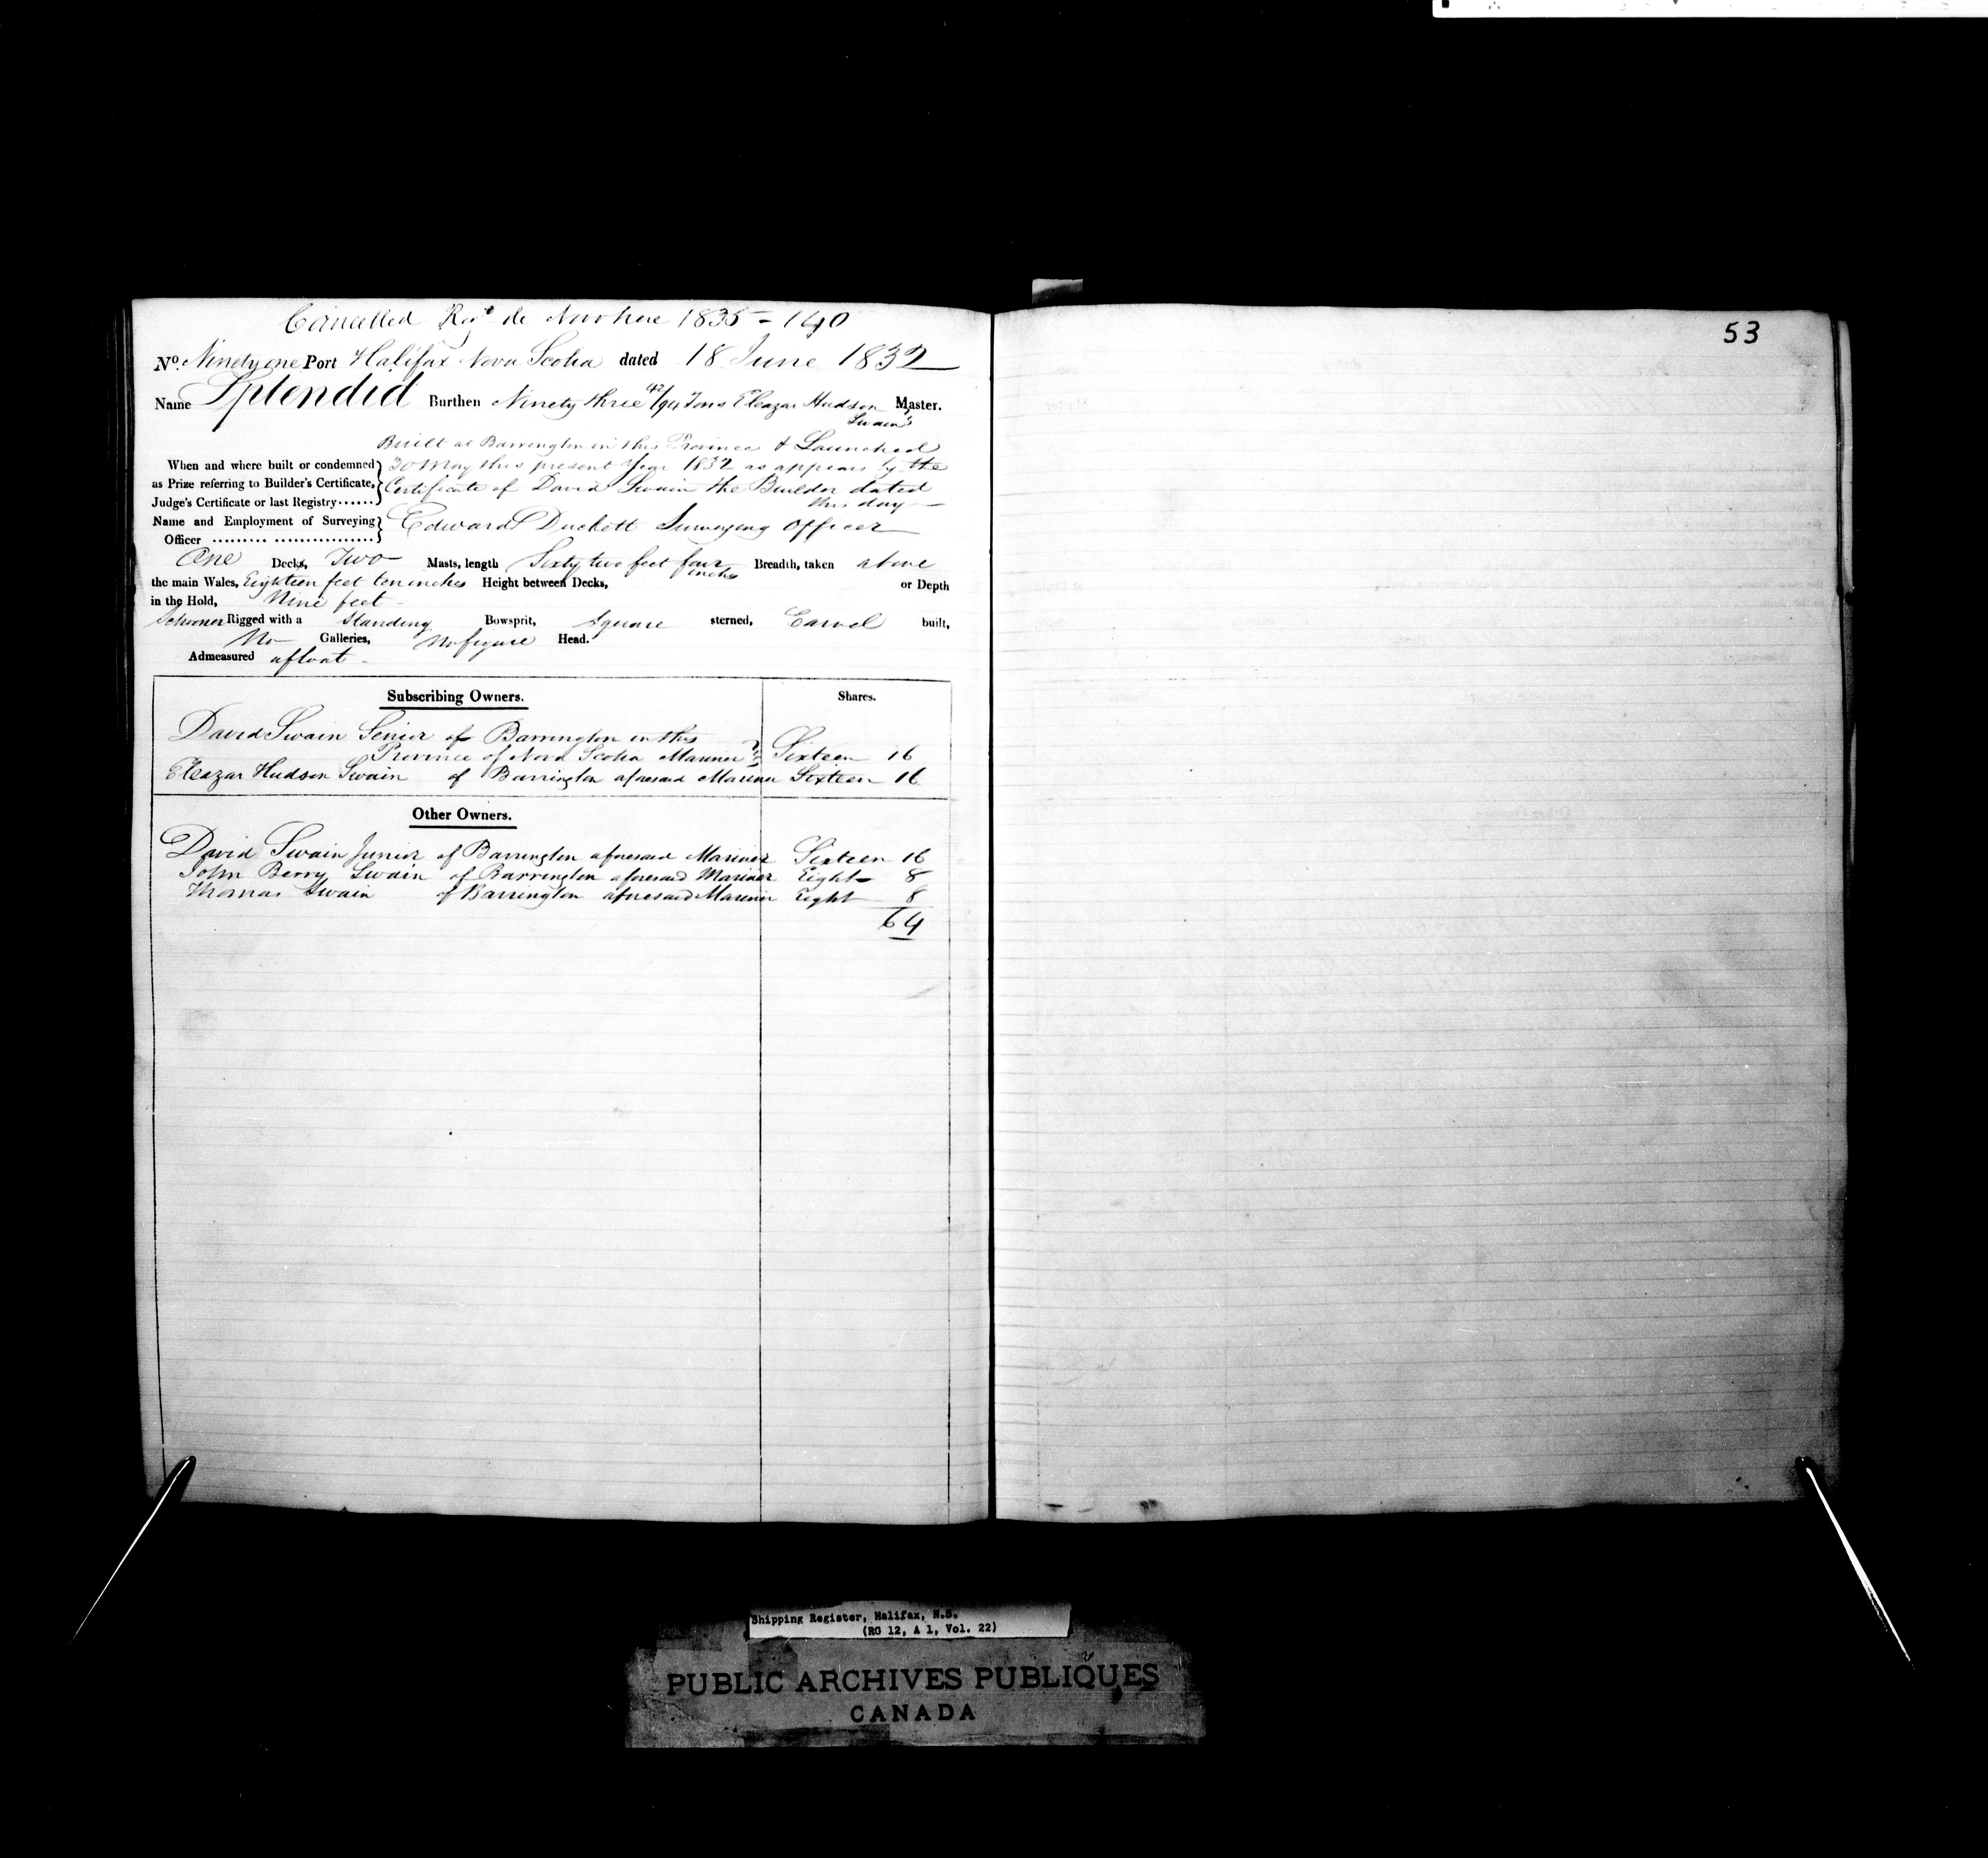 Cancelled Regd de Novo here 1835 - 140
53
No. Ninety one Port Halifax Nova Scotia dated 18 June 1832
Name Splendid Burthen Ninety three 42/94 Tons Eleazar Hudson Master.
Swain
Built at Barrington in this Province & Launched
When and where built or condemned 30 May this present Year 1832 as appears by the
as Prize referring to Builder's Certificate, Certificate of David Swain the Builder dated
Judge's Certificate or last Registry...... this day
Name and Employment of Surveying Edward Duckett Surveying Officer
Officer ......... ................
One Decks, Two Masts, length Sixty two feet four inches Breadth, taken above
the main Wales, Eighteen feet ten inches Height between Decks, or Depth
in the Hold, Nine feet
Schooner Rigged with a Standing Bowsprit, Square sterned, Carvel built,
No Galleries, No figure Head.
Admeasured afloat
Subscribing Owners. Shares.
David Swain Senior of Barrington in this
Province of Nova Scotia Mariner Sixteen 16
Eleazar Hudson Swain of Barrington aforesaid Mariner Sixteen 16
Other Owners.
David Swain Junior of Barrington aforesaid Mariner Sixteen 16
John Berry Swain of Barrington aforesaid Mariner Eight 8
Thomas Swain of Barrington aforesaid Mariner Eight 8
64
Shipping Register, Halifax, N.S.
(RG 12, A 1, Vol. 22)
PUBLIC ARCHIVES PUBLIQUES
CANADA